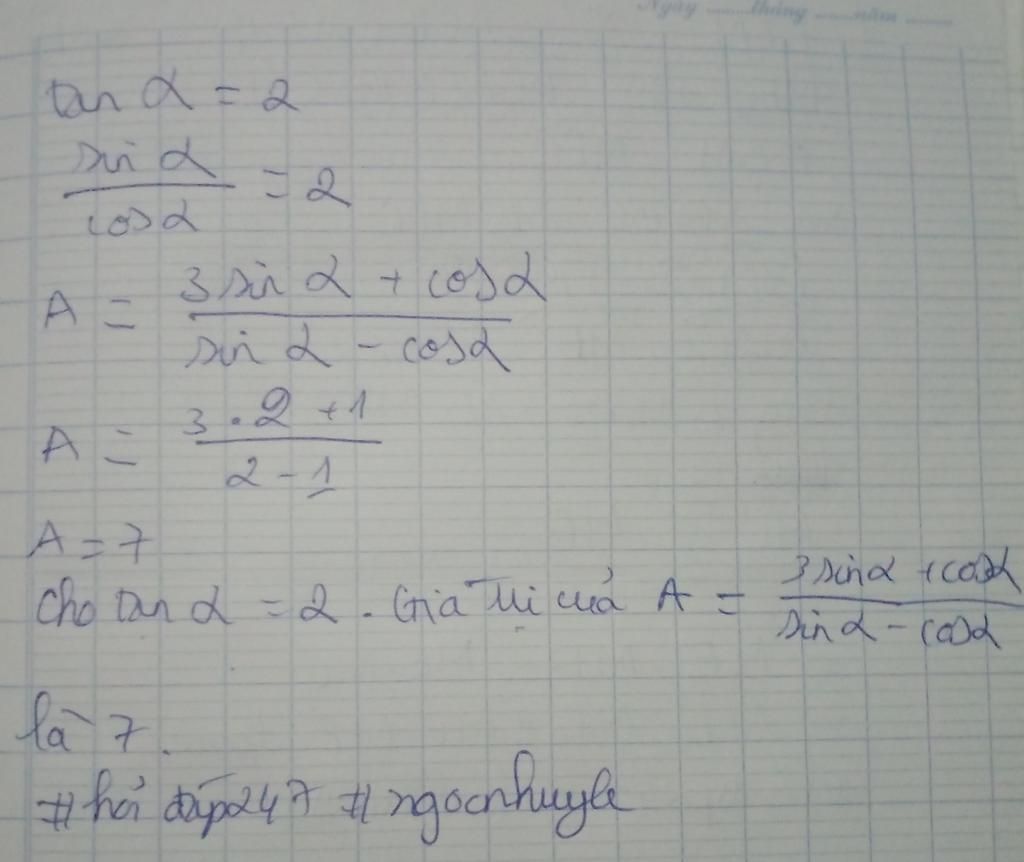 Ngày ......tháng ......năm ......
tan α = 2
sin α / cos α = 2
A = (3 sin α + cos α) / (sin α - cos α)
A = (3 . 2 + 1) / (2 - 1)
A = 7
Cho tan α = 2 . Giá trị của A = (3 sin α + cos α) / (sin α - cos α)
là 7.
#hỏi đáp247 #ngocnhuyle